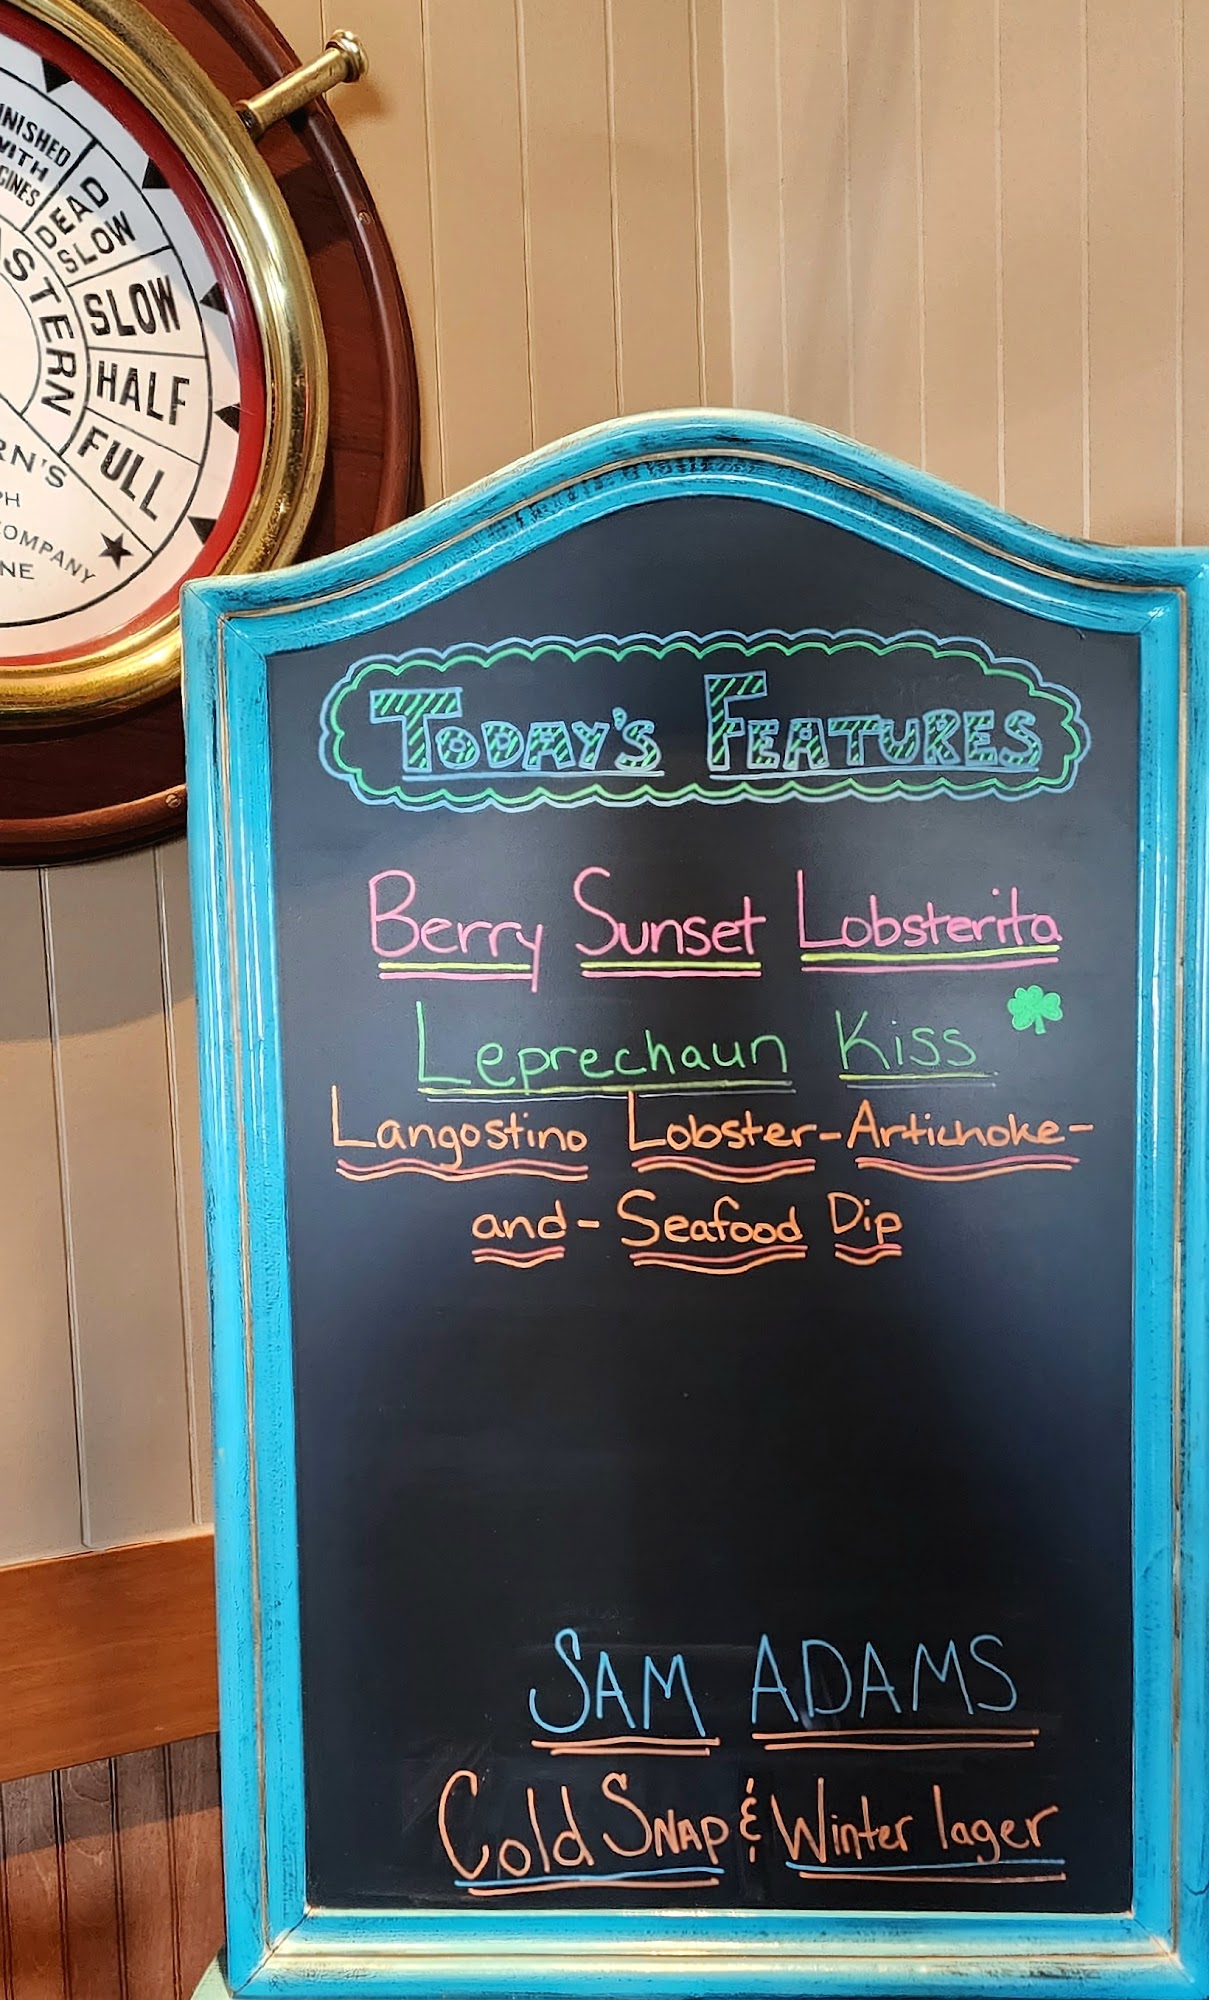 WITH
DEAD
SLOW
SLOW
HALF
FULL
STERN
COMPANY
TODAY'S FEATURES
Berry Sunset Lobsterita
Leprechaun Kiss
Langostino Lobster-Artichoke-
and-Seafood Dip
SAM ADAMS
Cold SNAP & Winter lager